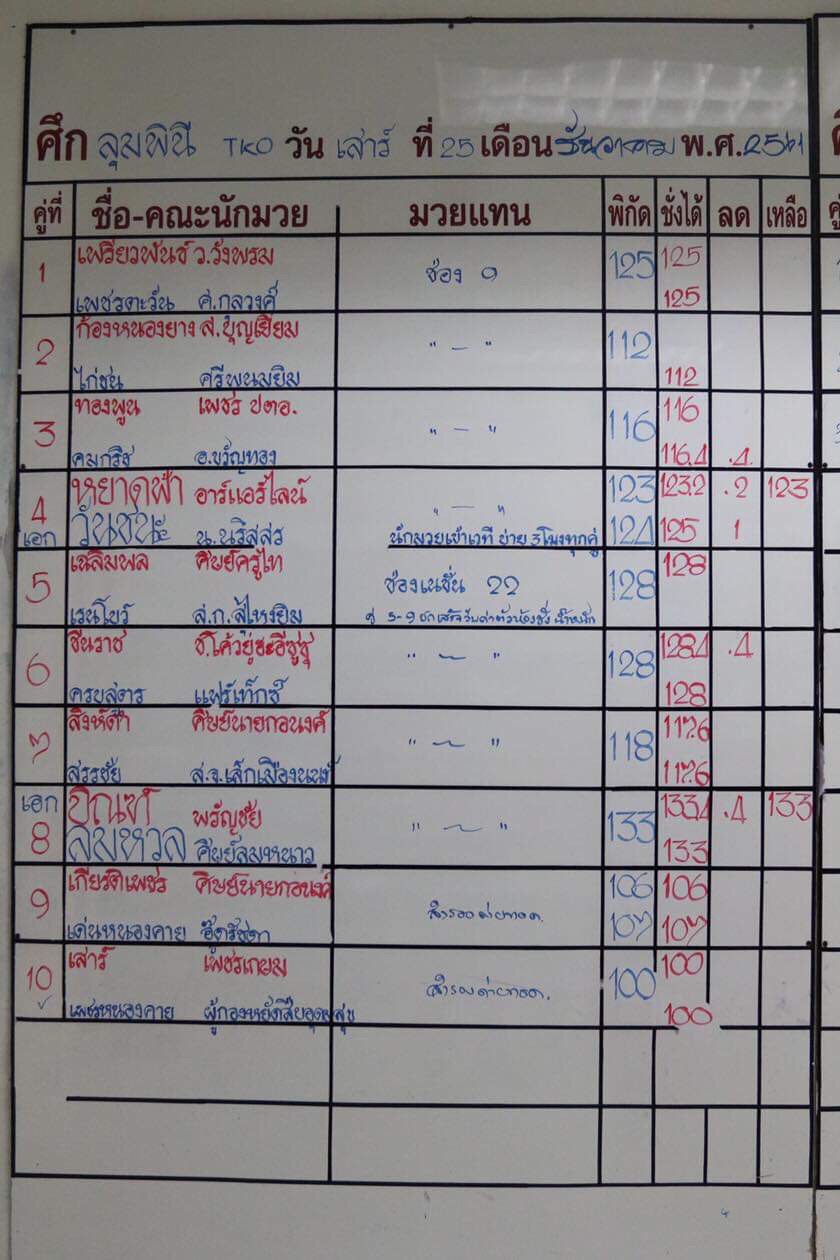 ศึก ลุมพินี TKO วัน เสาร์ ที่ 25 เดือน ธันวาคม พ.ศ. 2561
คู่ที่ ชื่อ-คณะนักมวย มวยแทน พิกัด ชั่งได้ ลด เหลือ
1 เพรียวพันธ์ ว.วังพรม ช่อง 9 125 125
เพชรตะวัน ศ.กุลวงศ์ 125
2 ก้องหนองยาง ส.บุญเยี่ยม " — " 112
ไก่ชน ศรีพนมยิม 112
3 ทองพูน เพชร ปตอ. " — " 116 116
คมกริช อ.ขวัญทอง 116.4 .4
4 หยาดฟ้า อาร์แอร์ไลน์ " — " 123 123.2 .2 123
เอก วันชนะ น.นริสสร นักมวยเข้าเวที บ่าย 3 โมงทุกคู่ 124 125 1
5 เฉลิมพล ศิษย์ครูไท ช่องเนชั่น 22 128 128
เรนโบว์ ส.ก.สู้ไหงยิม คู่ 5-9
6 ชินราช " — " 128 128.4 .4
แฟร์เท็กซ์ 128
7 สิงห์ดำ ศิษย์นายกอนงค์ " — " 118 117.6
สรรชัย ส.จ.เล็กเมืองนนท์ 117.6
เอก พรัญชัย " — " 133 133.4 .4 133
8 ลมหวล ศิษย์ลมหนาว 133
9 เกียรติเพชร ศิษย์นายกอนงค์ สำรองถ่ายทอด. 106 106
เด่นหนองคาย อู๊ดรัชดา 107 107
10 เสาร์ เพชรเกษม สำรองถ่ายทอด. 100 100
เพชรหนองคาย 100